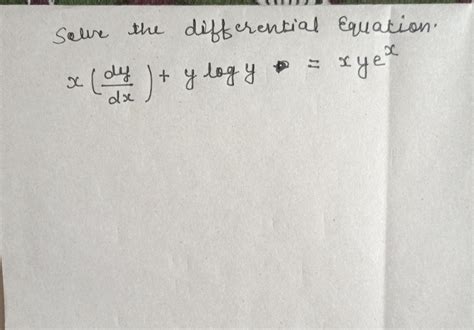 Solve the differential Equation.
x(dy/dx) + y log y = xye^x